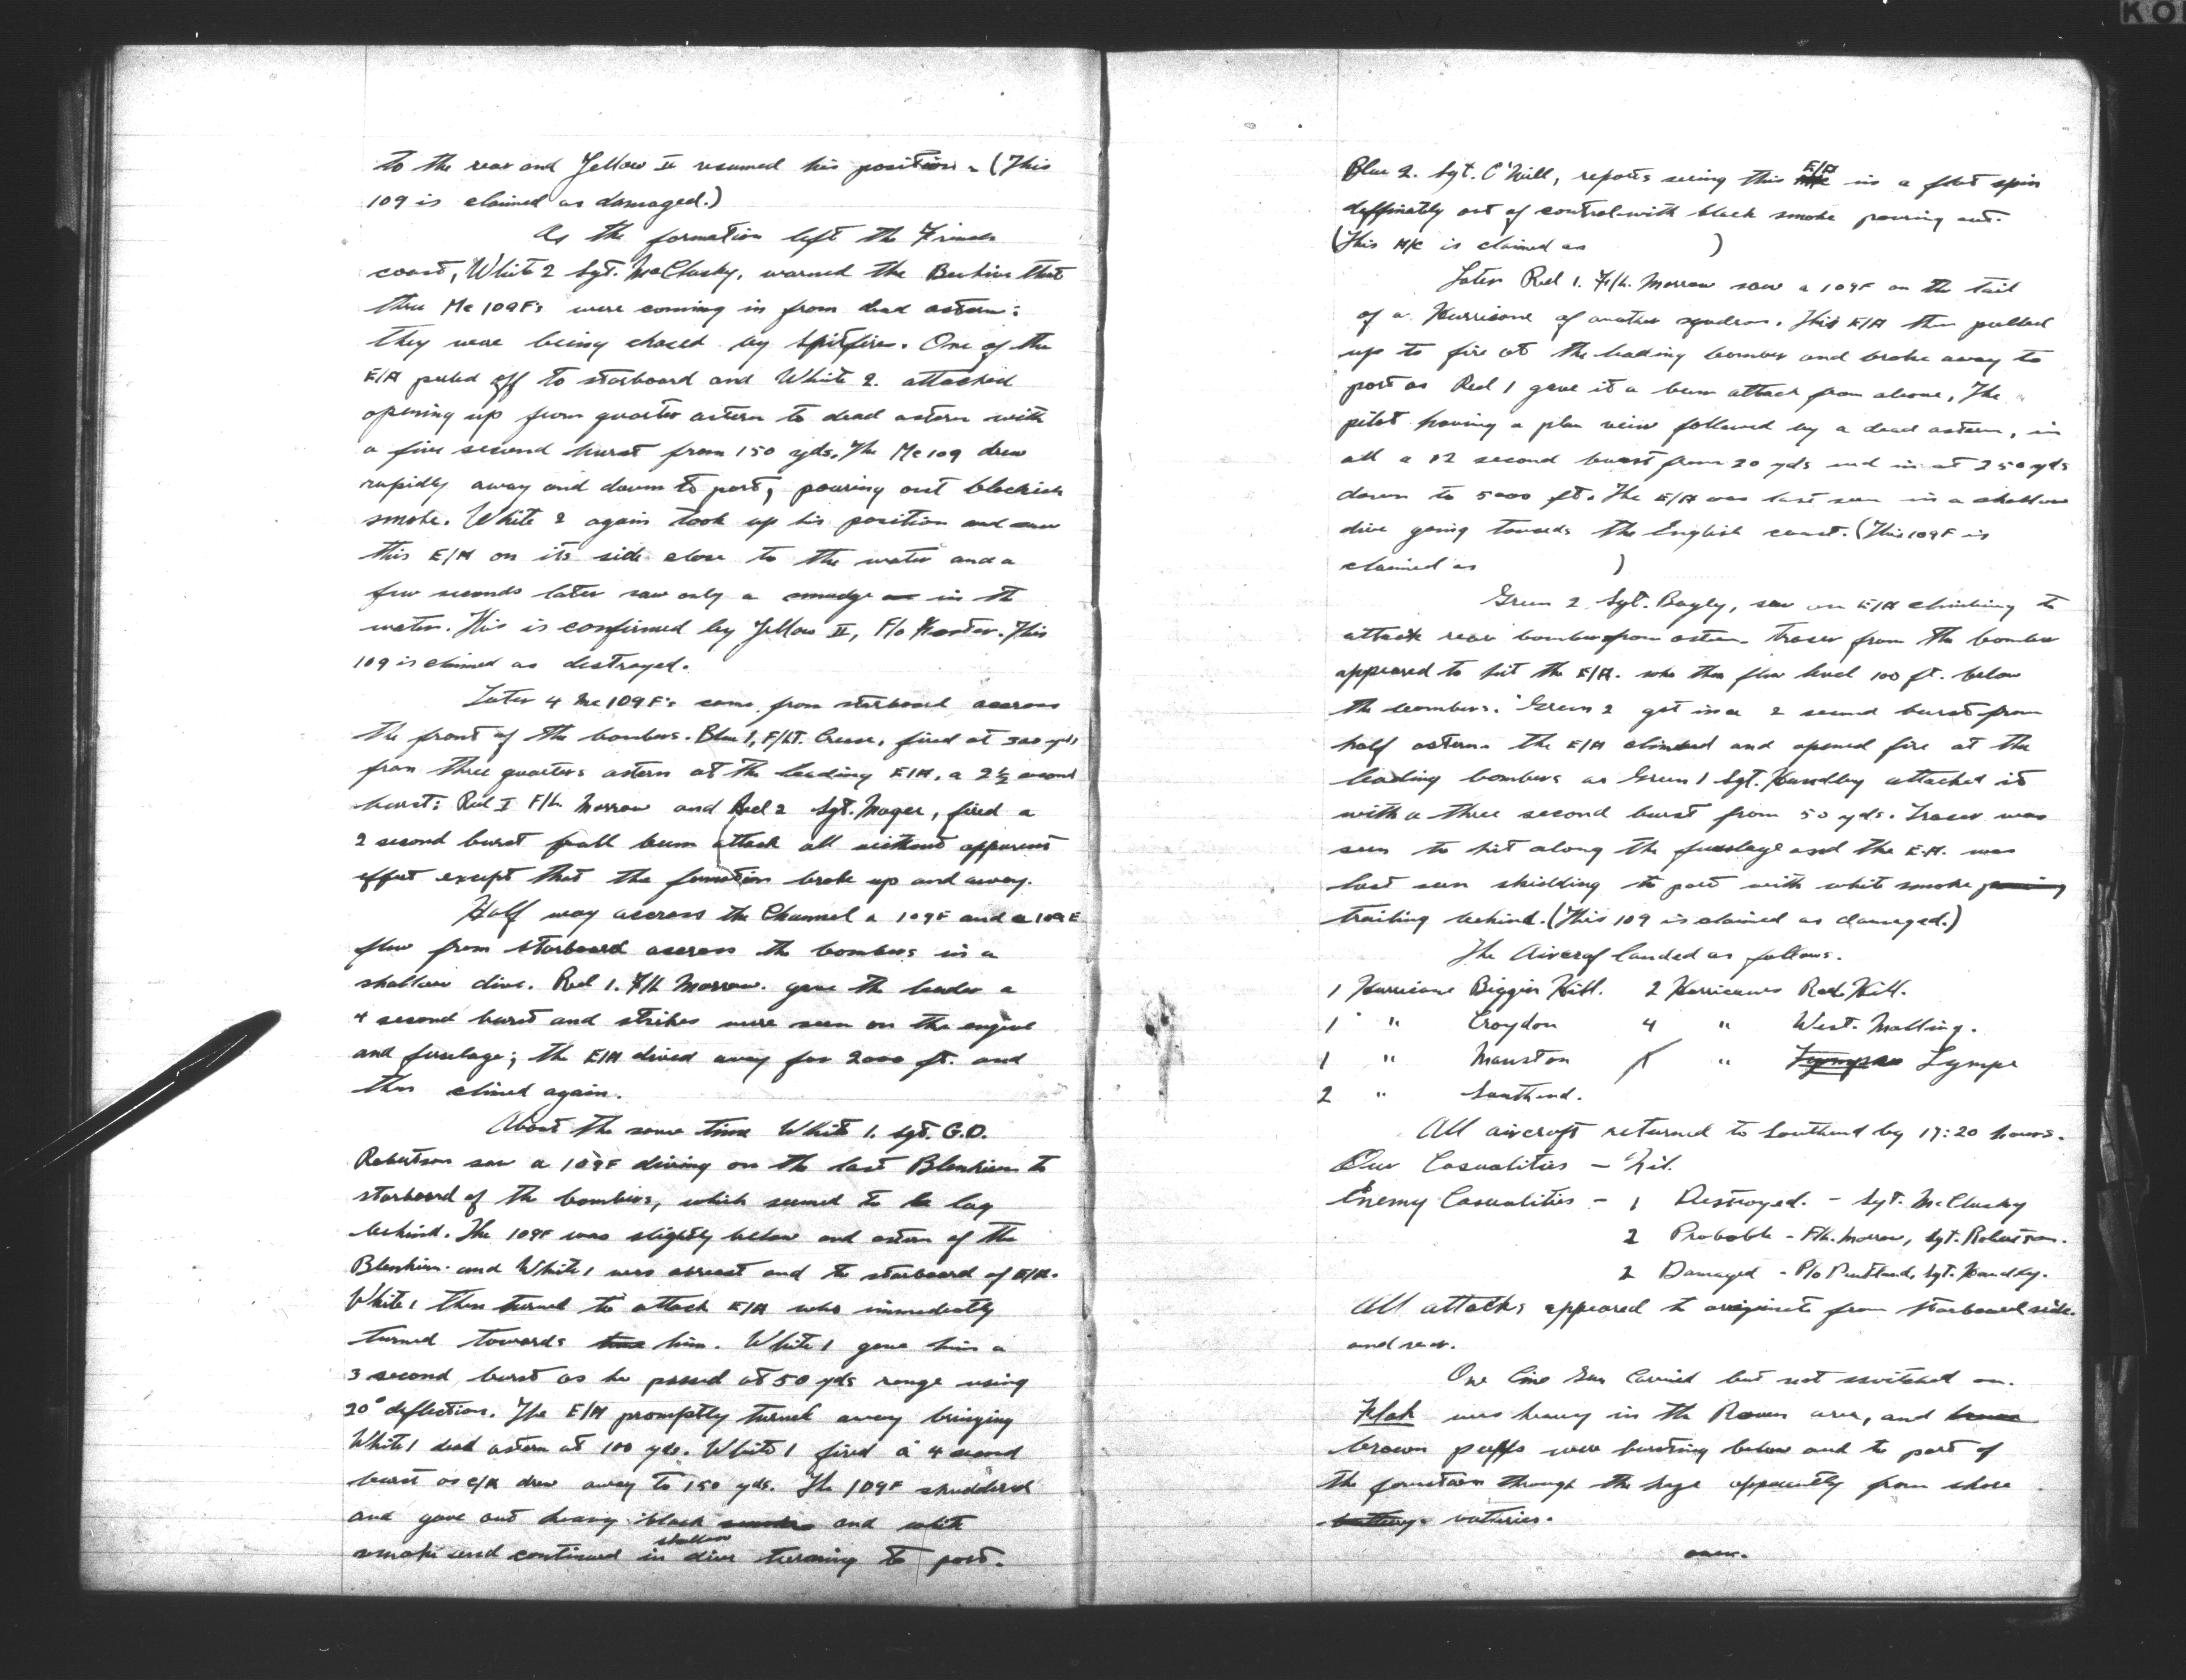 to the rear and Yellow II resumed his position - (This
109 is claimed as damaged.)
As the formation left the French
coast, White 2 Sgt. McClusky, warned the Beehive that
three Me 109F's were coming in from dead astern:
they were being chased by Spitfires. One of the
E/A peeled off to starboard and White 2. attacked
opening up from quarter astern to dead astern with
a five second burst from 150 yds. The Me 109 drew
rapidly away and down to port, pouring out blackish
smoke. White 2 again took up his position and saw
this E/A on its side close to the water and a
few seconds later saw only a smudge in the
water. This is confirmed by Yellow II, F/o. This
109 is claimed as destroyed.
Later 4 Me 109F's came from starboard accross
the front of the bombers. Blue 1, F/LT. Crease, fired at 300 yds
from three quarters astern at the leading E/A, a 2½ second
burst: Red I F/L Morrow and Red 2 Sgt. Mager, fired a
2 second burst beam attack all without apparent
effect except that the formation broke up and away.
Half way accross the Channel a 109F and a 109E
flew from starboard accross the bombers in a
shallow dive. Red 1. F/L Morrow. gave the leader a
4 second burst and strikes were seen on the engine
and fuselage; the E/A dived away for 2000 ft. and
then climed again.
About the same time White 1. Sgt. G.D.
Robertson saw a 109F diving on the last Blenheim to
starboard of the bombers, which seemed to lag
behind. The 109F was slightly below and astern of the
Blenheim and White 1 was abreast and to starboard of E/A.
White 1 then turned to attack E/A who immediatly
turned towards him. White 1 gave him a
3 second burst as he passed at 50 yds range using
20° deflection. The E/A promptly turned away bringing
White 1 dead astern at 100 yds. White 1 fired a 4 second
burst as E/A drew away to 150 yds. The 109F shuddered
and gave out heavy black and white
smoke and continued in shallow dive turning to port.
Blue 2. Sgt. O'Neill, reports seeing this E/A in a flat spin
deffinatly out of control with black smoke pouring out.
(This A/C is claimed as )
Later Red 1. F/L. Morrow saw a 109F on the tail
of a Hurricane of another squadron. This E/A then pulled
up to fire at the leading bomber and broke away to
port as Red 1 gave it a beam attack from above, The
pilot having a plan veiw followed by a dead astern, in
all a 12 second burst from 20 yds end in at 250 yds
down to 5000 ft. The E/A was last seen in a shallow
dive going towards the English coast. (This 109F is
claimed as )
Green 2 Sgt. Bayly, saw an E/A climbing to
attack rear bomber from astern. Traser from the bomber
appeared to hit the E/A. who then flew level 100 ft. below
the bombers. Green 2 got in a 2 second burst from
half astern. the E/A climbed and opened fire at the
leading bombers as Green 1 Sgt. Handley attacked it
with a three second burst from 50 yds. Traser was
seen to hit along the fuselage and the E.A. was
last seen skidding to port with white smoke pouring
trailing behind. (This 109 is claimed as damaged.)
The Aircraf landed as follows.
1 Hurricane Biggin Hill. 2 Hurricanes Red Hill.
1 " Croydon 4 " West. Malling.
1 " Manston " Lympe
2 " Southend.
All aircraft returned to Southend by 17:20 hours.
Our Casualities - Nil.
Enemy Casualities - 1 Destroyed. - Sgt. McClusky
2 Probable - F/L. Morrow, Sgt. Robertson.
2 Damaged - P/o Pentland, Sgt. Handley.
All attacks appeared to originate from starboard side
and rear.
One Cine Gun Carried but not switched on.
Flak was heavy in the Rouen area, and
brown puffs were bursting below and to port of
the formation through the haze apparently from shore
batteries.